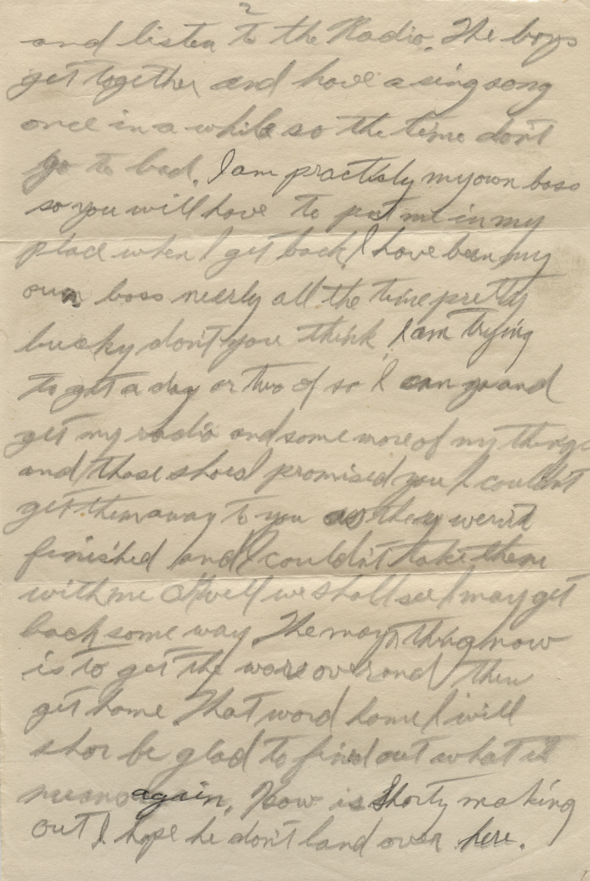 2
and listen to the Radio. The boys
get together and have a sing song
once in a while so the time don't
go to bad. I am practisly my own boss
so you will have to put me in my
place when I get back I have been my
own boss neerly all the time pretty
lucky don't you think I am trying
to get a day or two of so I can go and
get my radio and some more of my things
and those shoes I promised you I couldn't
get them away to you as they weren't
finished and I couldn't take them
with me well we shall see I may get
back some way The main thing now
is to get the war over and then
get home That word home I will
shor be glad to find out what it
means again. How is Shorty making
out I hope he don't land over here.